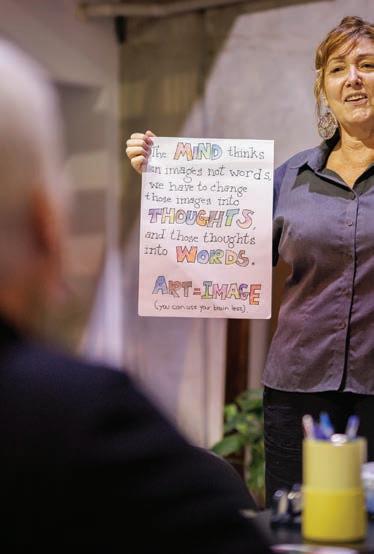 The MIND thinks
in images not words,
we have to change
those images into
THOUGHTS,
and those thoughts
into WORDS.
ART=IMAGE
(you can use your brain less)